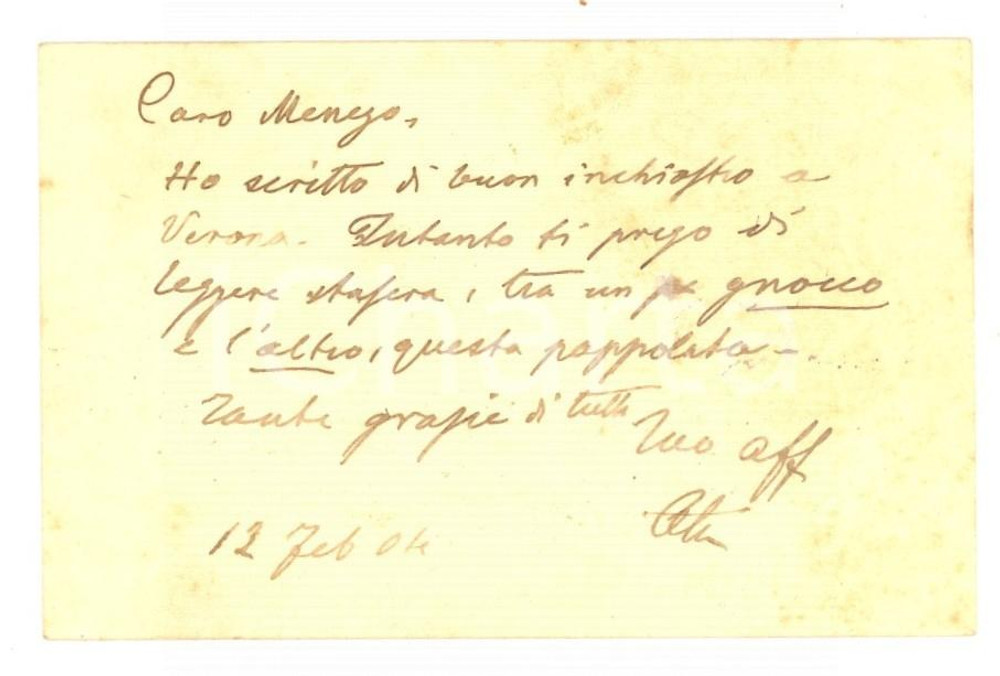 Caro Menego,
Ho scritto di buon inchiostro a
Verona. Intanto ti prego di
leggere stasera, tra un gnocco
e l'altro, questa pappolata -.
Tante grazie di tutto
Tuo aff
12 Feb 04